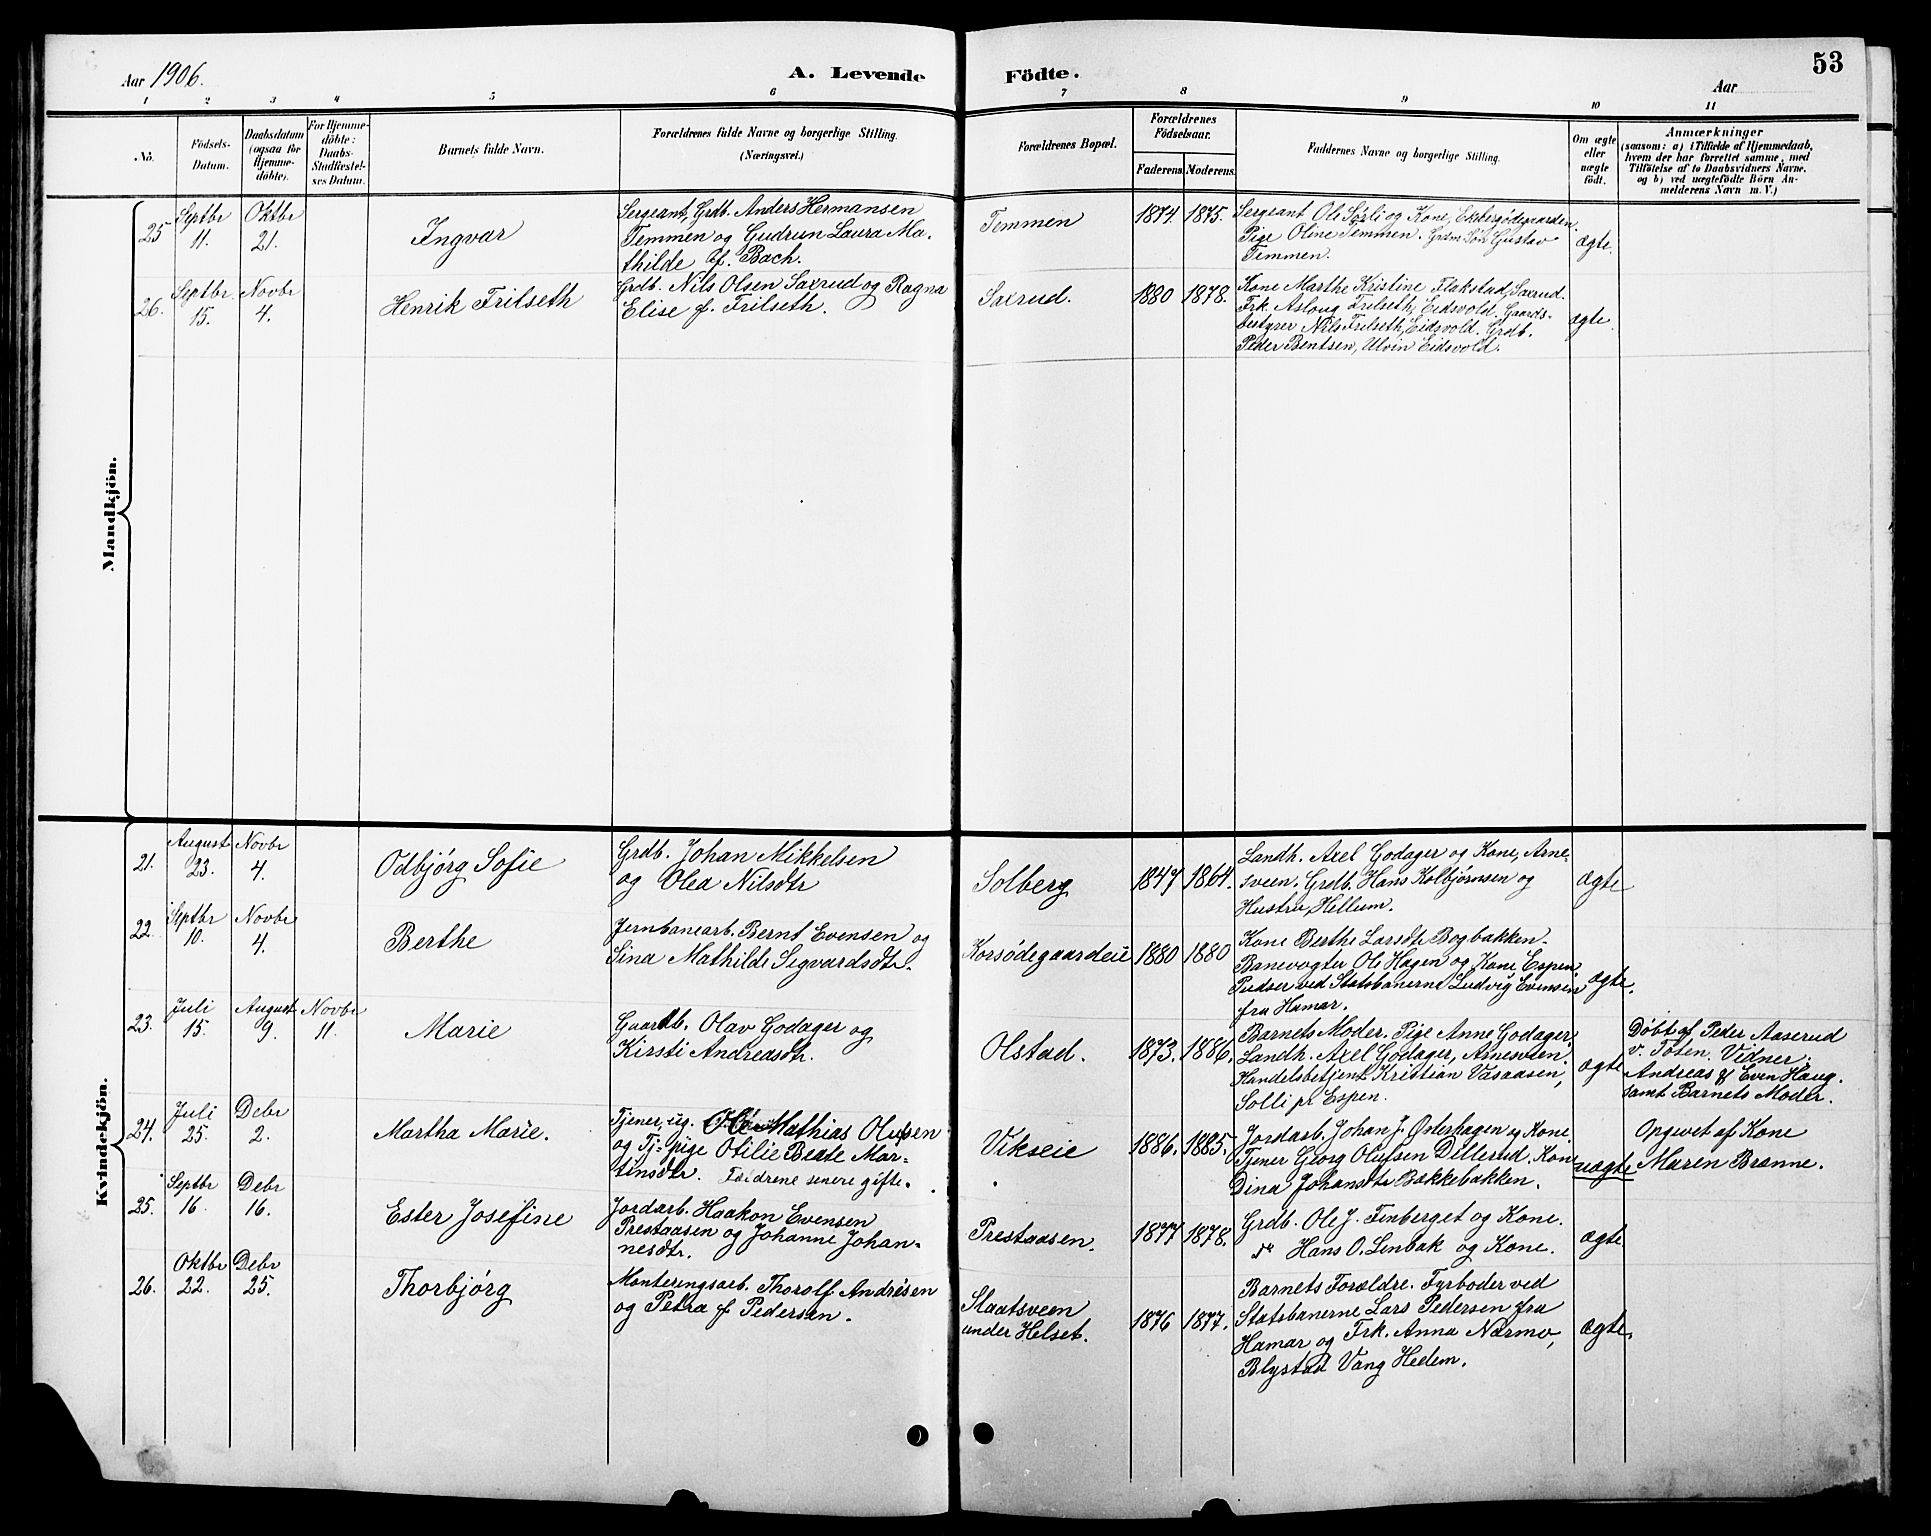 53
Aar 1906.
A. Levende Födte.
Aar
1 2 3 4 5 6 7 8 9 10 11
No.
Födsels-
Datum.
Daabsdatum
(ogsaa for
Hjemme-
döbte).
For Hjemme-
döbte:
Daabs-
Stadfæstel-
ses Datum.
Barnets fulde Navn.
Forældrenes fulde Navne og borgerlige Stilling.
(Næringsvei.)
Forældrenes Bopæl.
Forældrenes
Födselsaar.
Faderens Moderens
Faddernes Navne og borgerlige Stilling.
Om ægte
eller
uægte
födt.
Anmærkninger
(saasom: a) i Tilfælde af Hjemmedaab,
hvem der har forrettet samme, med
Tilföielse af to Daabsvidners Navne.
og b) ved uægtefödte Börn An-
melderens Navn m. V.)
Mandkjön.
25
Septbr
11.
Oktbr
21.
Ingvar
Sergeant, Grdb. Anders Hermansen
Temmen og Gudrun Laura Ma-
thilde f. Bach.
Temmen
1874. 1875.
Sergeant Ole Sørli og Kone, Ekbergødegaarden.
Pige Oline Temmen. Grdm Søn Gustav
Temmen.
ægte.
26.
Septbr.
15.
Novbr
4.
Henrik Frilseth
Grdb. Nils Olsen Saxrud og Ragna
Elise f. Frilseth.
Saxrud.
1880 1878.
Kone Marthe Kristine Flakstad, Saxrud.
Frk. Aslaug Frilseth, Eidsvold. Gaards-
bestyrer Nils Frilseth, Eidsvold. Grdb.
Peder Bentsen, Ulvin Eidsvold.
ægte.
Kvindekjön.
21.
August
23.
Novbr
4.
Odbjørg Sofie
Grdb. Johan Mikkelsen
og Olea Nilsdtr
Solberg
1847 1864.
Landh. Axel Godager og Kone, Arne-
sveen. Grdb. Hans Kolbjørnsen og
Hustru, Hellum.
ægte
22.
Septbr
10.
Novbr
4.
Berthe
Jernbanearb. Bernt Evensen og
Sina Mathilde Segvardsdtr.
Korsødegaardeie
1880 1880
Kone Berthe Larsdtr Bogbakken.
Banevogter Ole Hagen og Kone, Espen.
Pudser ved Statsbanerne Ludvig Evensen
fra Hamar.
ægte.
23.
Juli
15.
August
9.
Novbr
11.
Marie
Gaardb. Olav Godager og
Kirsti Andreasdtr.
Olstad.
1873. 1886.
Barnets Moder. Pige Anne Godager.
Landh. Axel Godager, Arnesveen.
Handelsbetjent Kristian Vasaasen,
Solli pr Espen.
ægte
Døbt af Peder Aaserud
v. Toten. Vidner:
Andreas & Even Haug.
samt Barnets Moder.
24.
Juli
25.
Debr
2.
Martha Marie.
Tjener, ug. Ole Mathias Olufsen
og Tj-pige Otilie Beate Mar-
tinsdtr. Forældrene senere gifte.
Vikseie
1886. 1885.
Jordarb. Johan J. Østerhagen og Kone.
Tjener Georg Olufsen Dellerud. Kone
Dina Johansdtr Bakkebakken.
uægte
Opgevet af Kone
Maren Brænne.
25.
Septbr
16
Debr
16.
Ester Josefine
Jordarb. Haakon Evensen
Prestaasen og Johanne Johan-
nesdtr.
Prestaasen.
1877 1878.
Grdb. Ole J. Finberget og Kone.
do Hans O. Lenbak og Kone.
ægte
26.
Oktbr
22.
Debr
25.
Thorbjørg
Monteringsarb. Thorolf Andresen
og Petra f. Pedersen.
Slaatsveen
under Helset.
1876 1877.
Barnets Forældre. Fyrbøder ved
Statsbanerne Lars Pedersen fra
Hamar og Frk. Anna Nærmo,
Blystad Vang Hedem.
ægte.